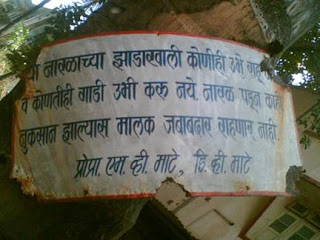 या नारळाच्या झाडाखाली कोणीही उभे राहू
व कोणतीही गाडी उभी करू नये. नारळ पडून काही
नुकसान झाल्यास मालक जबाबदार राहणार नाही.
प्रोप्रा. एम. व्ही. माटे, डि. व्ही. माटे